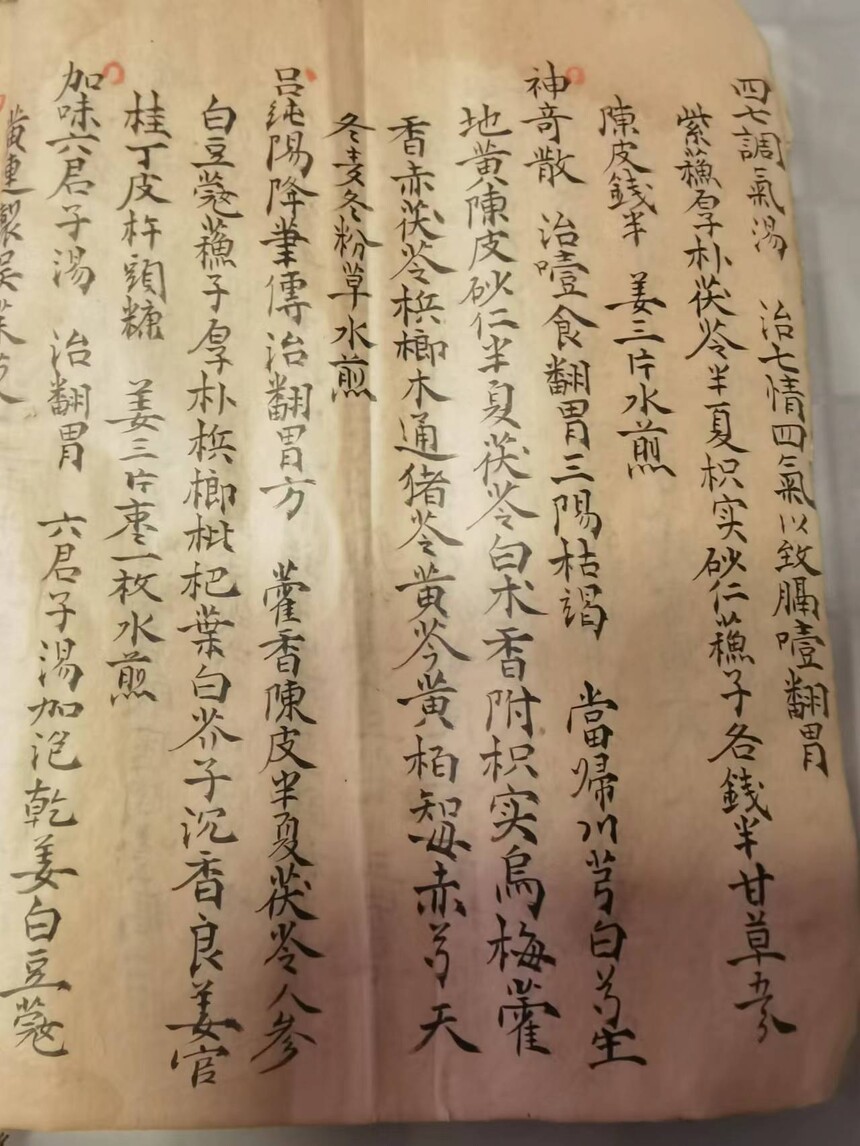 四七調氣湯 治七情四氣以致膈噎翻胃
紫蘓厚朴茯苓半夏枳实砂仁蘓子各錢半甘草五分
陳皮錢半 姜三片水煎
神奇散 治噎食翻胃三陽枯竭 當㷌川芎白芍生
地黄陳皮砂仁半夏茯苓白术香附枳实烏梅藿
香赤茯苓梹榔木通猪苓黄芩黄栢知母赤芍天
冬麦冬粉草水煎
吕純陽降筆傳治翻胃方 藿香陳皮半夏茯苓人参
白豆蔻蘓子厚朴梹榔枇杷葉白芥子沉香良姜官
桂丁皮杵頭糠 姜三片枣一枚水煎
加味六君子湯 治翻胃 六君子湯加泡乾姜白豆蔻
黄連製吴茱萸